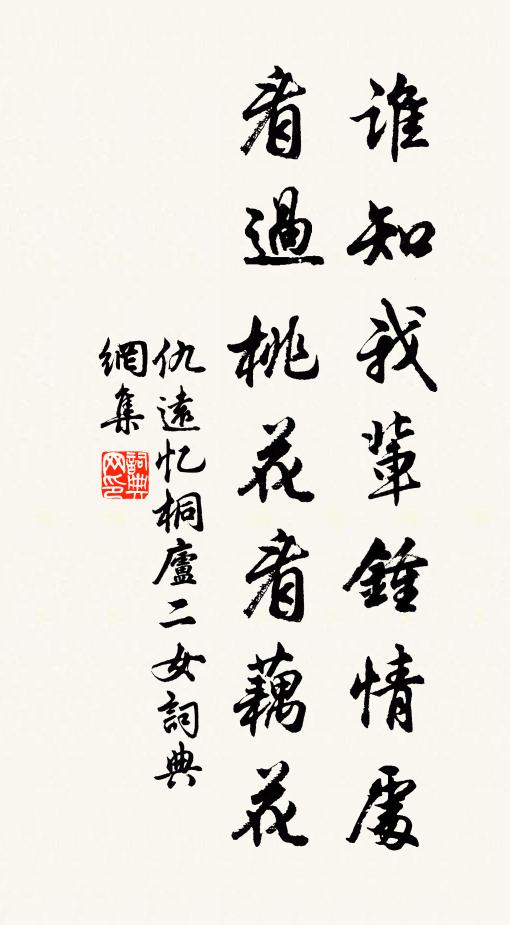 誰知我輩鍾情處
看過桃花看藕花
仇遠忆桐廬二女詞典
網集
詞典网印